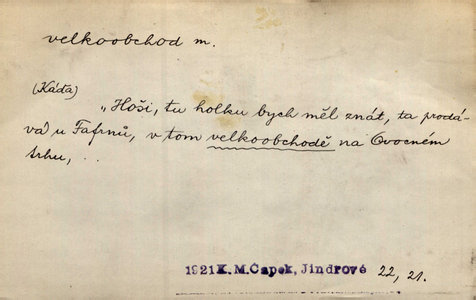 velkoobchod m.
(Káďa)
„Hoši, tu holku bych měl znát, ta prodá-
vá u Fafrnů, v tom velkoobchodě na Ovocném
trhu, ..
1921 K. M. Čapek, Jindrové 22, 21.